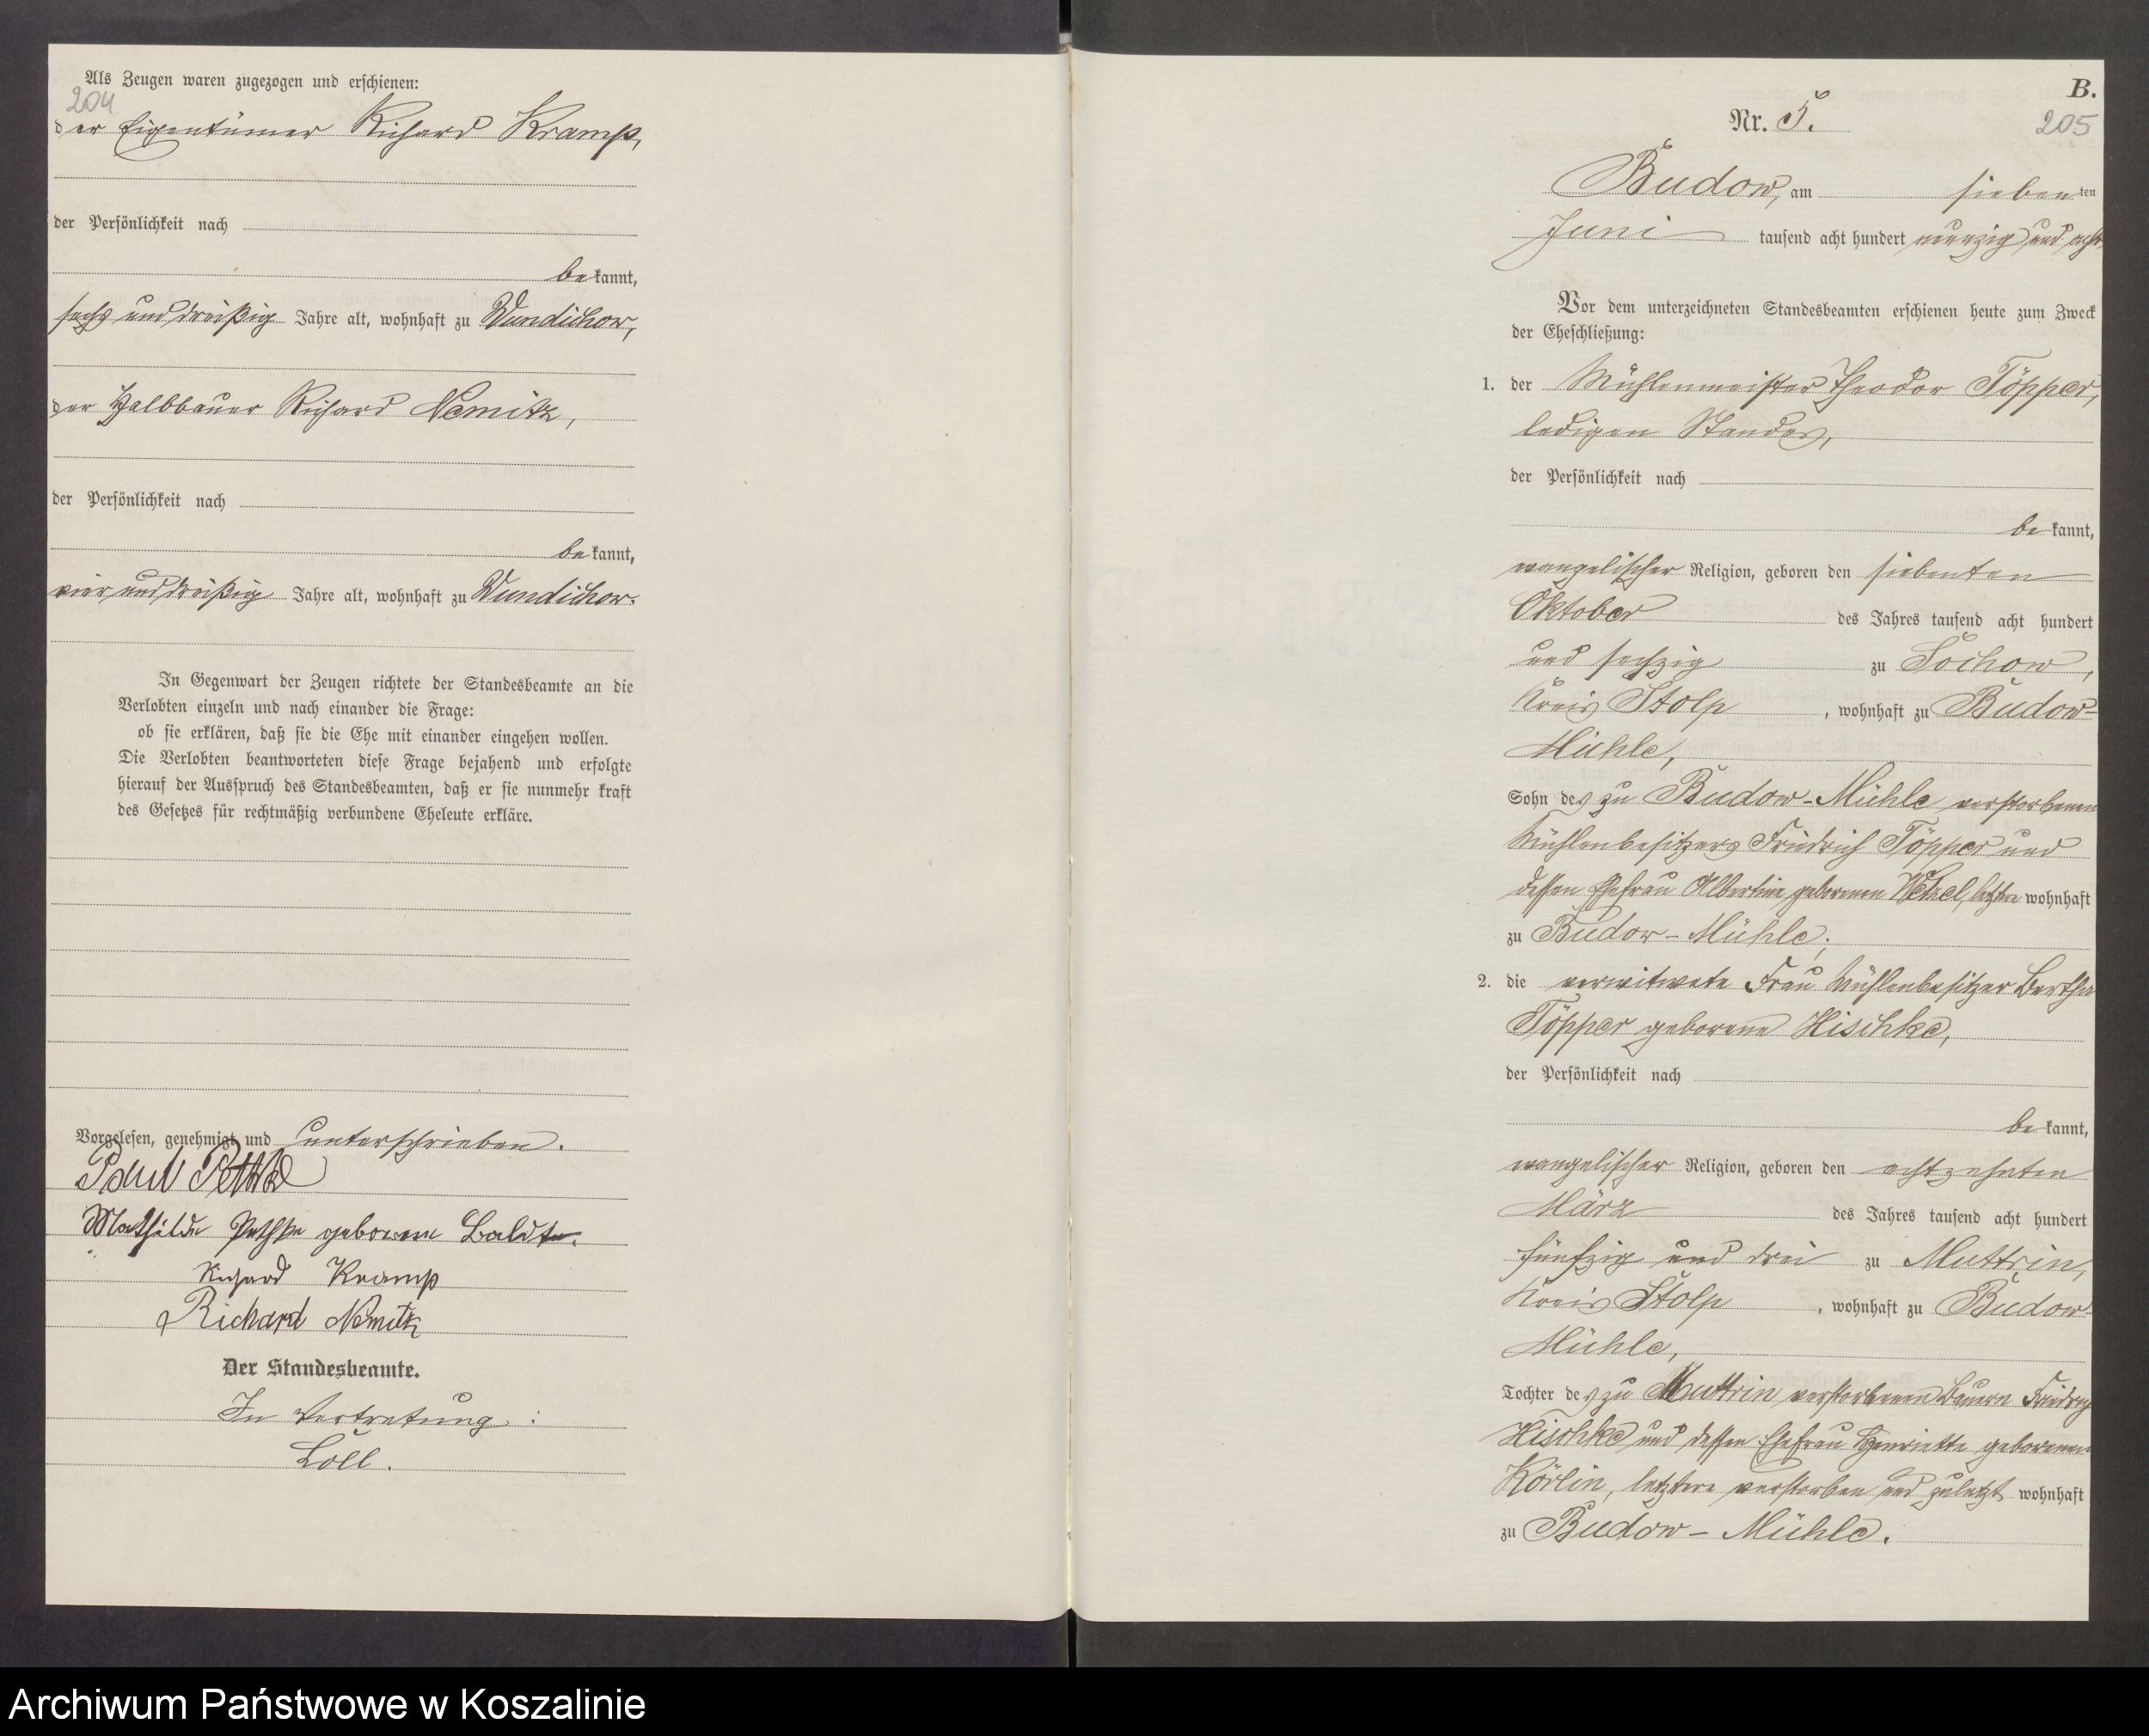 Als Zeugen waren zugezogen und erschienen:
204
der Eigentümer Richard Kramp,
der Persönlichkeit nach
bekannt,
sechs und dreißig Jahre alt, wohnhaft zu Wundichow,
der Halbbauer Richard Nemitz,
der Persönlichkeit nach
bekannt,
vier und dreißig Jahre alt, wohnhaft zu Wundichow.
In Gegenwart der Zeugen richtete der Standesbeamte an die
Verlobten einzeln und nach einander die Frage:
ob sie erklären, daß sie die Ehe mit einander eingehen wollen.
Die Verlobten beantworteten diese Frage bejahend und erfolgte
hierauf der Ausspruch des Standesbeamten, daß er sie nunmehr kraft
des Gesetzes für rechtmäßig verbundene Eheleute erkläre.
Vorgelesen, genehmigt und unterschrieben.
Paul
Mathilde geborene
Richard Kramp
Richard Nemitz
Der Standesbeamte.
In Vertretung:
Löll.
B.
Nr. 5.
205
Budow, am siebenten
Juni tausend acht hundert neunzig und acht
Vor dem unterzeichneten Standesbeamten erschienen heute zum Zweck
der Eheschließung:
1. der Mühlenmeister Theodor Töpper,
ledigen Standes,
der Persönlichkeit nach
bekannt,
evangelischer Religion, geboren den siebenten
Oktober des Jahres tausend acht hundert
und sechzig zu Lochow,
Kreis Stolp, wohnhaft zu Budow-
Mühle,
Sohn des zu Budow-Mühle verstorbenen
Mühlenbesitzers Friedrich Töpper und
dessen Ehefrau Albertine geborenen Wetzel, letztere wohnhaft
zu Budow-Mühle;
2. die verwitwete Frau Mühlenbesitzer Bertha
Töpper geborene Hischke,
der Persönlichkeit nach
bekannt,
evangelischer Religion, geboren den achtzehnten
März des Jahres tausend acht hundert
fünfzig und drei zu Muttrin,
Kreis Stolp, wohnhaft zu Budow-
Mühle,
Tochter des zu Muttrin verstorbenen Bauern Friedrich
Hischke und dessen Ehefrau Henriette geborenen
Körlin, letztere verstorben und zuletzt wohnhaft
zu Budow-Mühle.
Archiwum Państwowe w Koszalinie